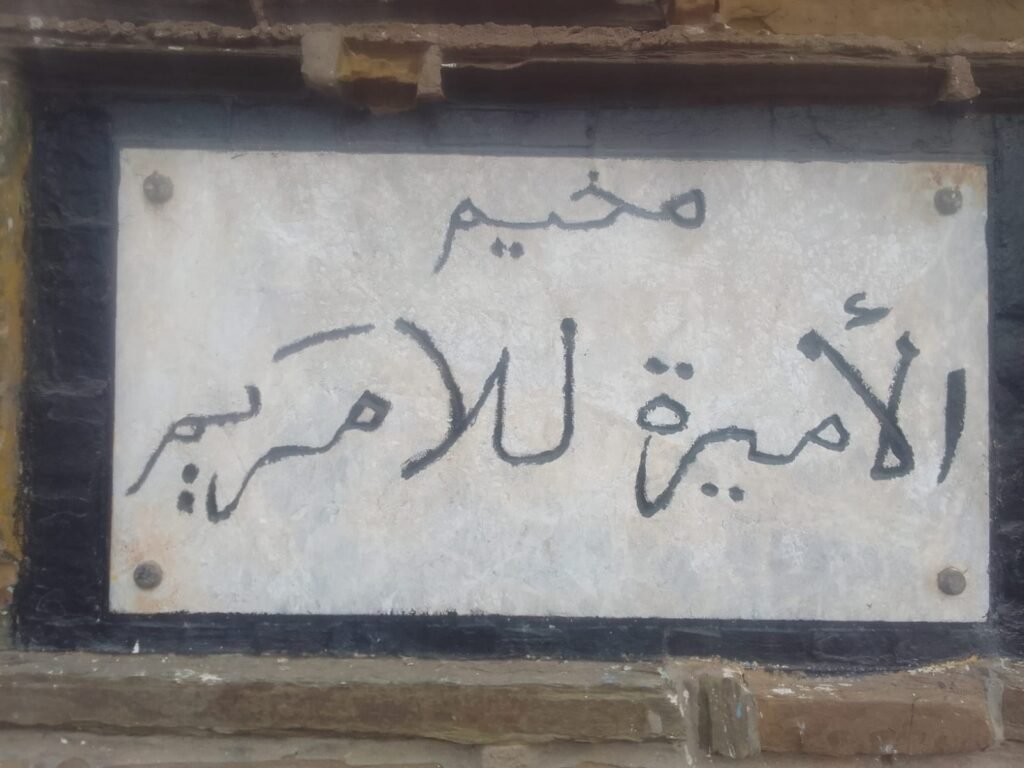 مخيم
الأميرة للامريم